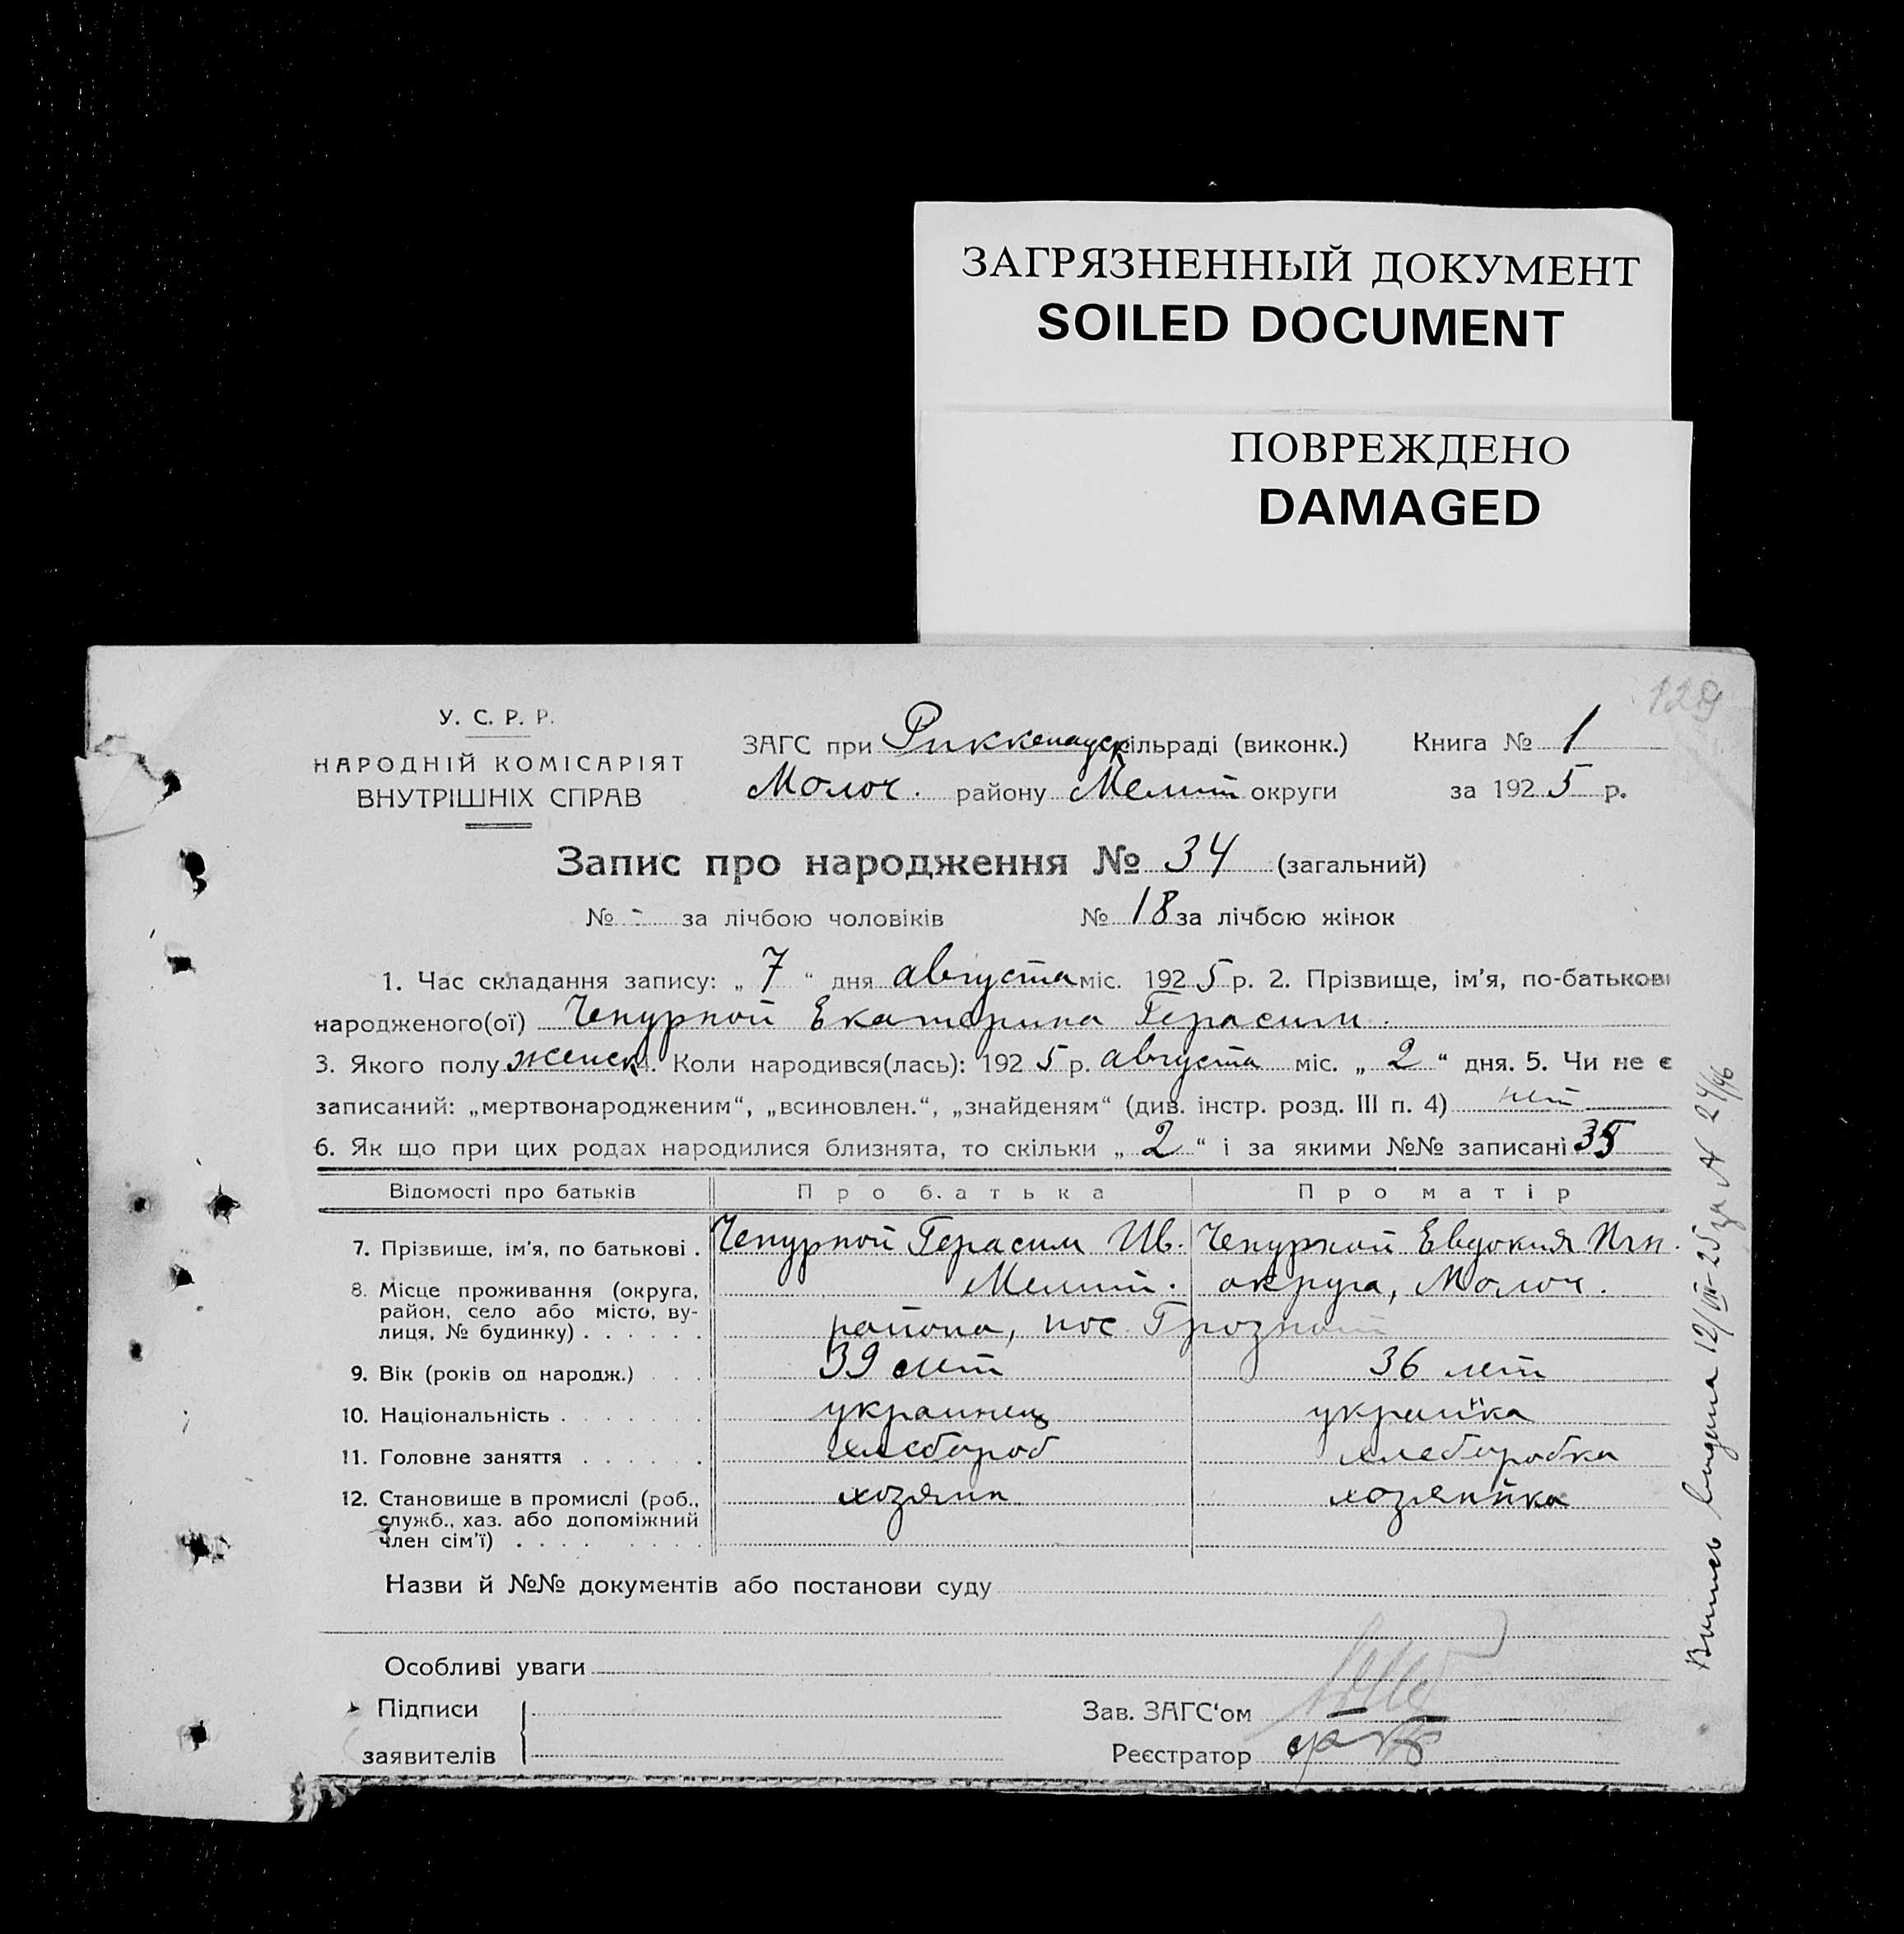 ЗАГРЯЗНЕННЫЙ ДОКУМЕНТ
SOILED DOCUMENT
ПОВРЕЖДЕНО
DAMAGED
129
У. С. Р. Р.
НАРОДНІЙ КОМІСАРІЯТ
ВНУТРІШНІХ СПРАВ
ЗАГС при Риккенауск ільраді (виконк.) Книга № 1
Молоч. району Мелит округи за 1925 р.
Запис про народження № 34 (загальний)
№ - за лічбою чоловіків № 18 за лічбою жінок
1. Час складання запису: „ 7 “ дня августа міс. 1925 р. 2. Прізвище, ім’я, по-батькові
народженого(ої) Чепурной Екатерина Герасим.
3. Якого полу женск. Коли народився(лась): 1925 р. августа міс. „ 2 “ дня. 5. Чи не є
записаний: „мертвонародженим“, „всиновлен.“, „знайденям“ (див. інстр. розд. III п. 4) нет
6. Як що при цих родах народилися близнята, то скільки „ 2 “ і за якими №№ записані 35
Відомості про батьків Про батька Про матір
7. Прізвище, ім’я, по батькові . Чепурной Герасим Ив. Чепурной Евдокия
8. Місце проживання (округа, Мелит. округа, Молоч.
район, село або місто, ву-
лиця, № будинку) . . . . . . района, пос Грозной
9. Вік (років од народж.) . . . 39 лет 36 лет
10. Національність . . . . . . . украинец украинка
11. Головне заняття . . . . . . хлебороб хлеборобка
12. Становище в промислі (роб., хозяин хозяинка
служб., хаз. або допоміжний
член сім’ї) . . . . . . . .
Назви й №№ документів або постанови суду
Особливі уваги
Підписи
заявителів
Зав. ЗАГС‘ом
Реєстратор
Выпись выдана 12/VIII-25 за № 24/46